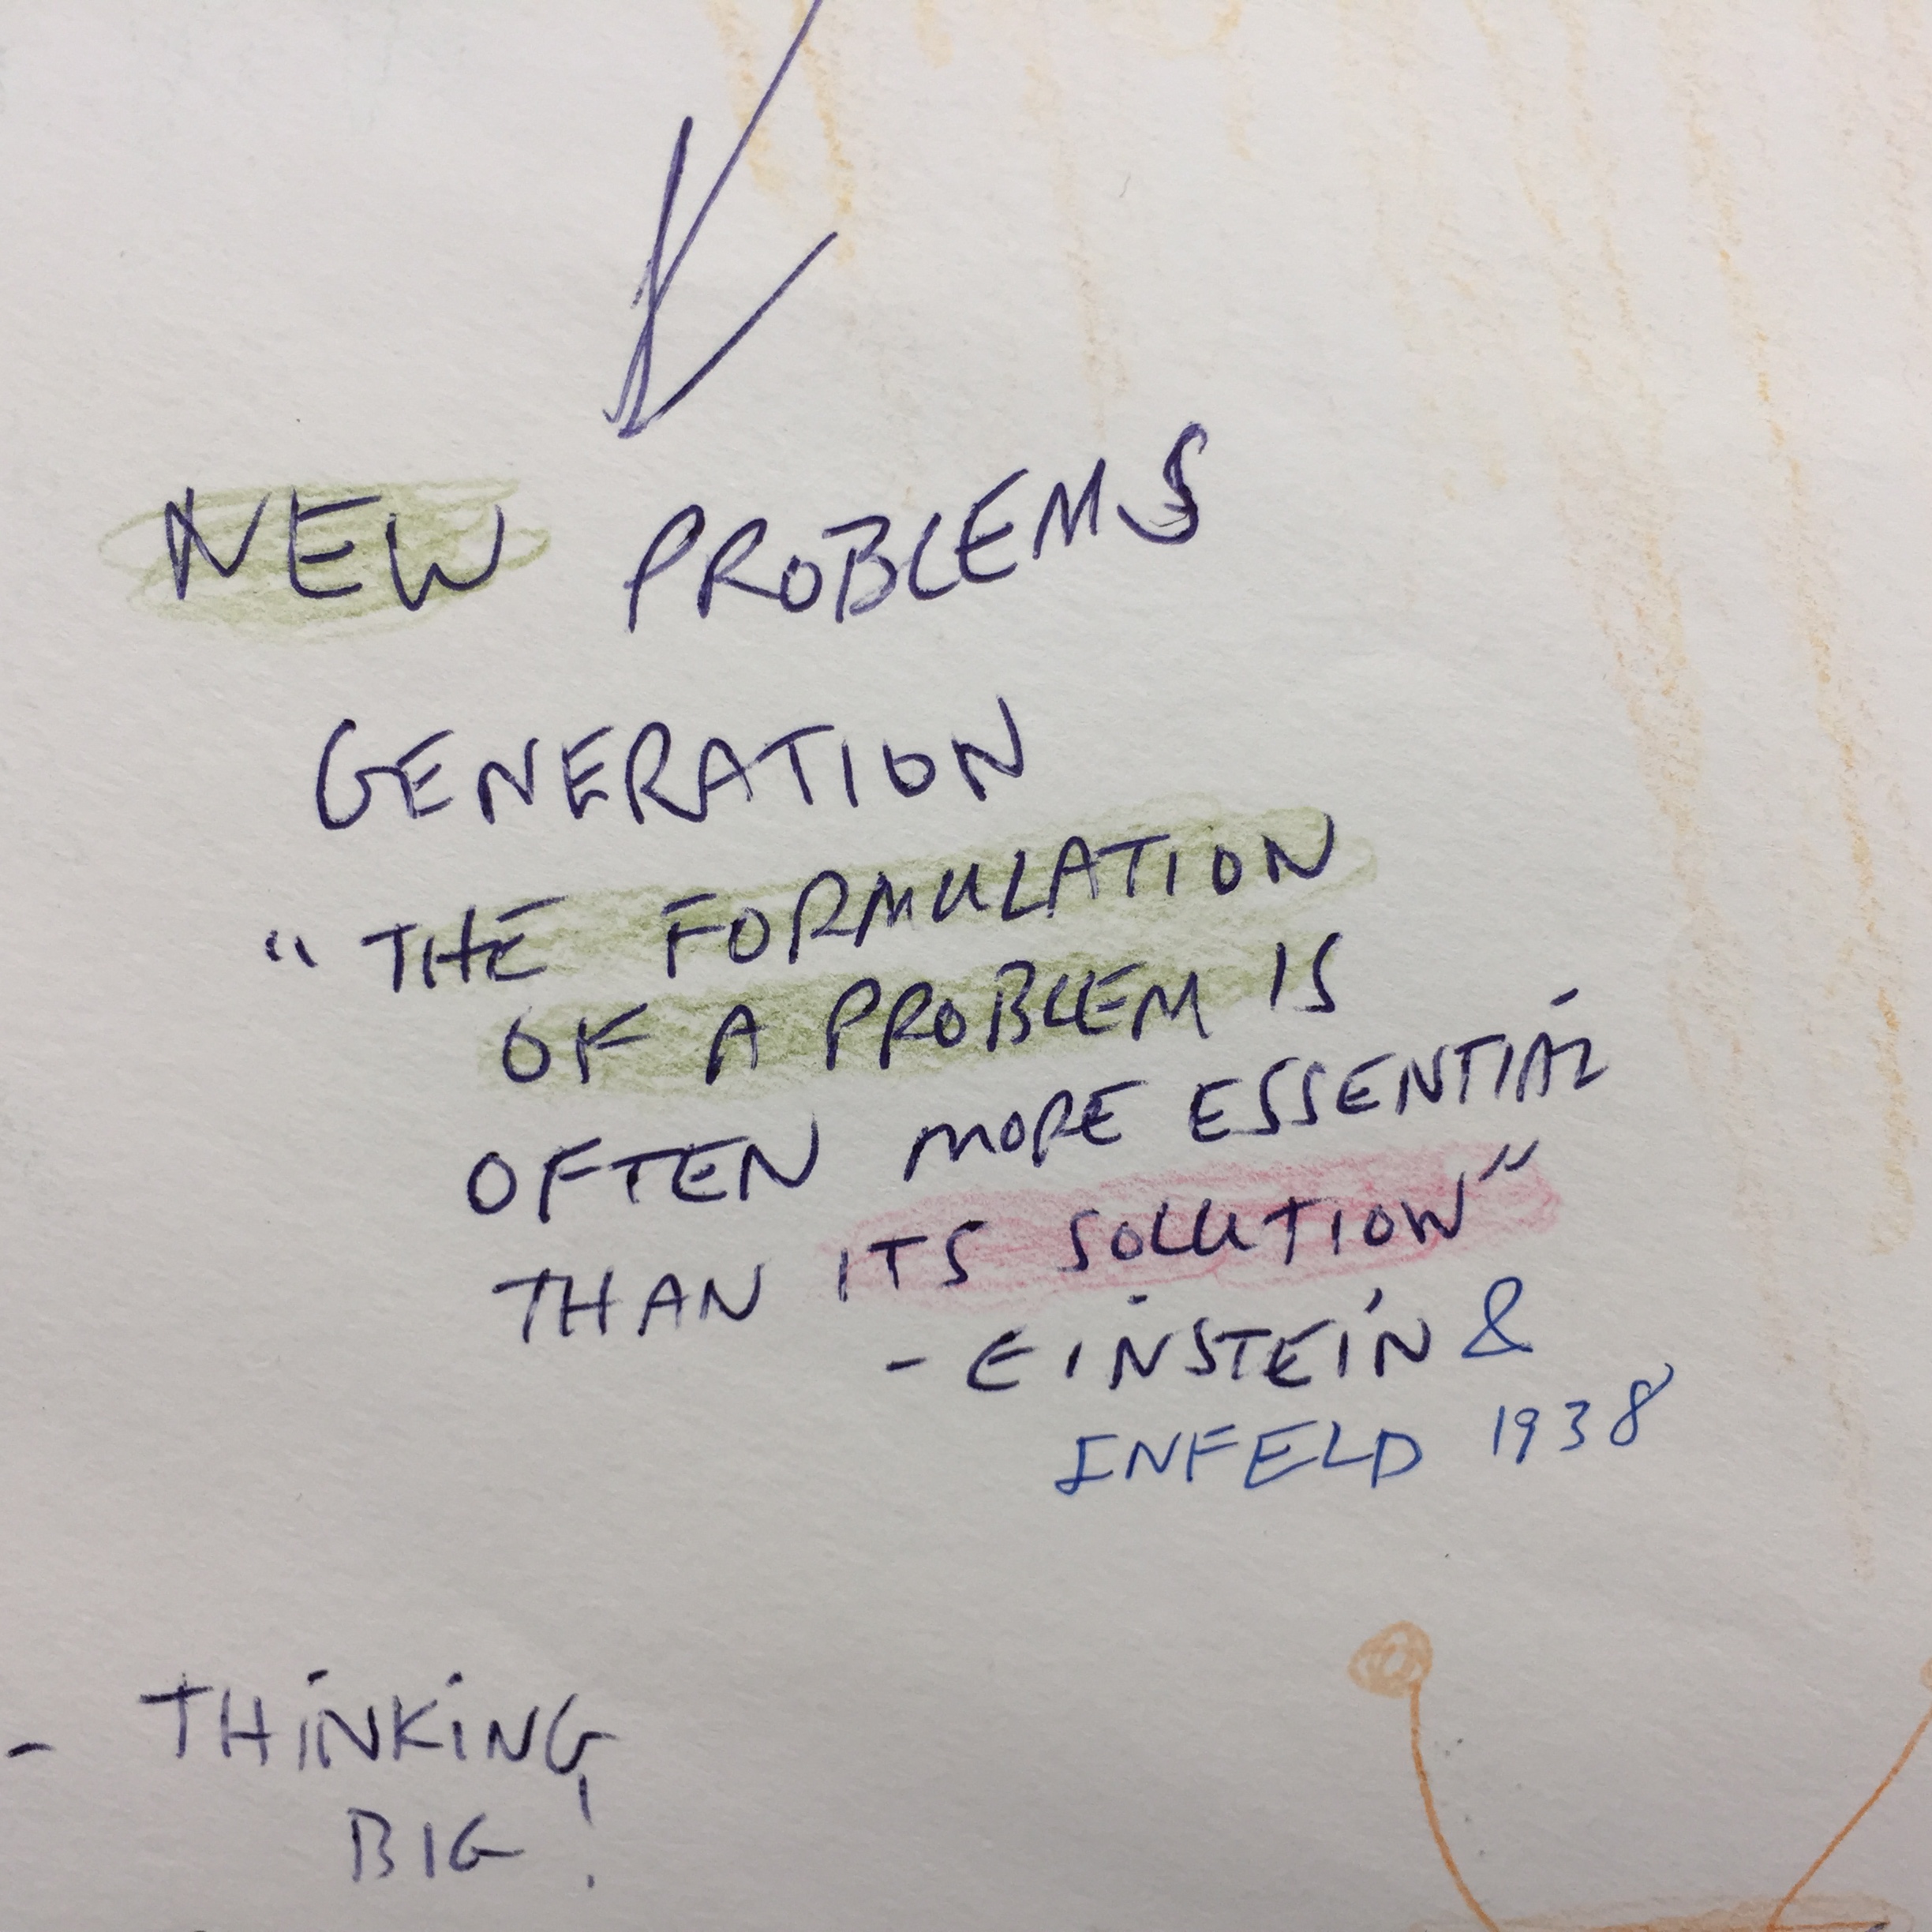 NEW PROBLEMS
GENERATION
"THE FORMULATION
OF A PROBLEM IS
OFTEN MORE ESSENTIAL
THAN ITS SOLUTION"
- EINSTEIN &
INFELD 1938
- THINKING
BIG!